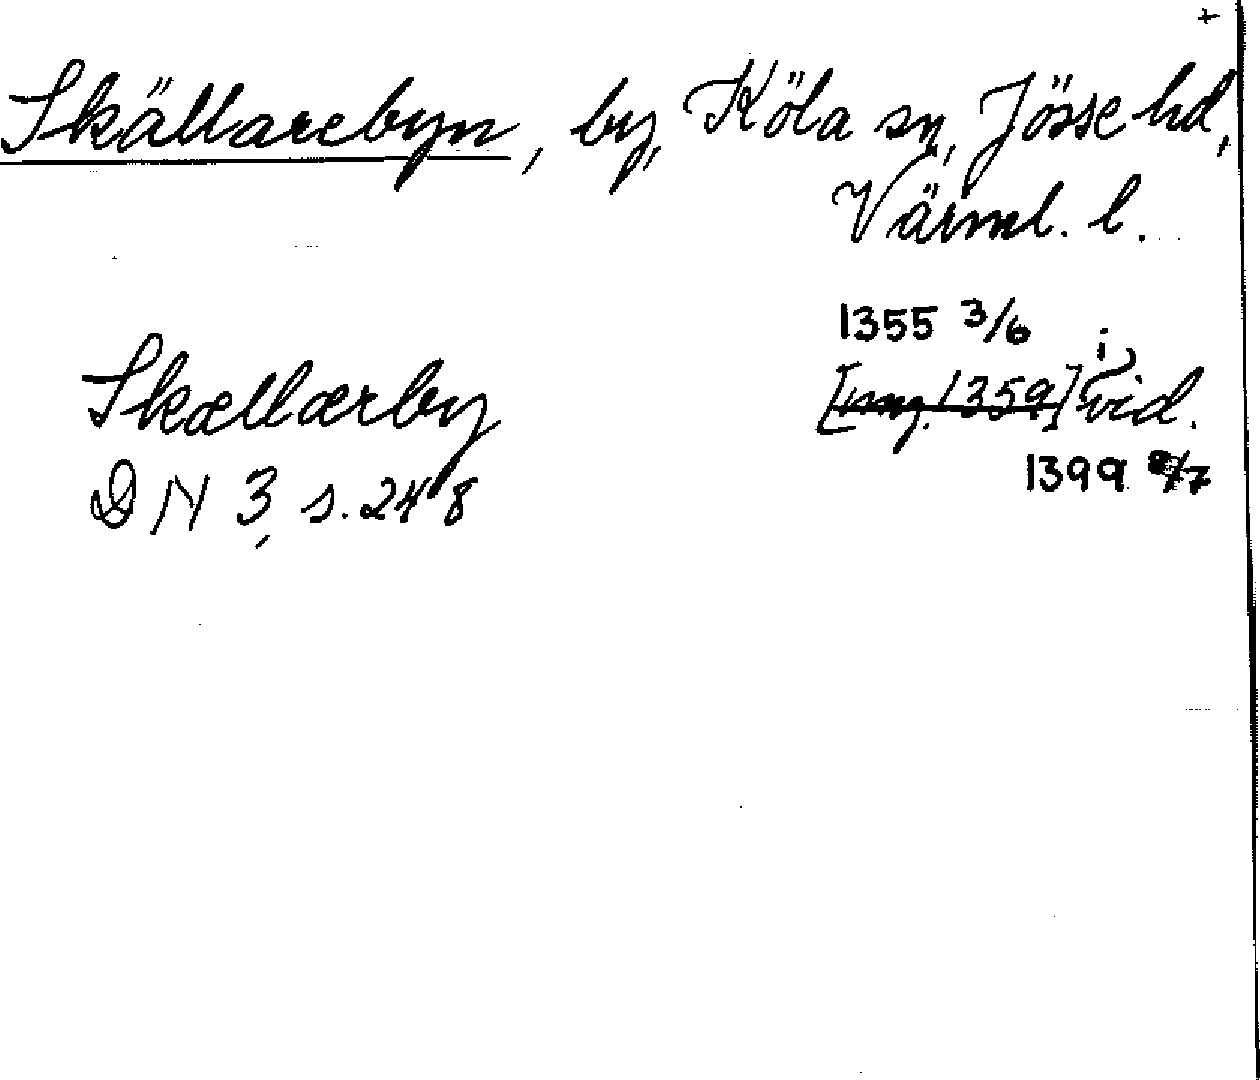 +
Skällarebyn, by, Köla sn, Jösse hd,
Värml. l.
1355 3/6
Skællærby [omg. 1359] i vid.
DN 3, s. 248 1399 8/7